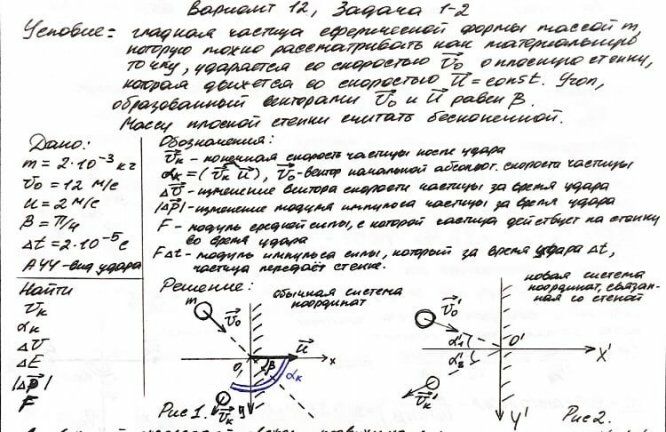 Вариант 12, Задача 1-2
Условие: гладкая частица сферической формы массой m,
которую можно рассматривать как материальную
точку, ударяется со скоростью v⃗₀ о плоскую стенку,
которая движется со скоростью u⃗ = const. Угол,
образованный векторами v⃗₀ и u⃗ равен β.
Массу плоской стенки считать бесконечной.
Дано:
m = 2·10⁻³ кг
v₀ = 12 м/с
u = 2 м/с
β = π/4
Δt = 2·10⁻⁵ с
АУУ - вид удара
Найти
v_к
α_к
Δv
ΔE
|Δp⃗|
F
Обозначения:
v⃗_к - конечная скорость частицы после удара
α_к = (v⃗_к u⃗), v⃗₀ - вектор начальной абсолют. скорости частицы
Δv⃗ - изменение вектора скорости частицы за время удара
|Δp⃗| - изменение модуля импульса частицы за время удара
F - модуль средней силы, с которой частица действует на стенку
во время удара
FΔt - модуль импульса силы, который за время удара Δt,
частица передаёт стенке.
Решение:
обычная система
координат
m
v⃗₀
O
u⃗
β
α_к
x
v⃗_к
y
Рис 1.
новая система
координат, связан-
ная со стеной
v⃗₀'
α'₁
α'₂
O'
X'
v⃗_к'
Y'
Рис 2.